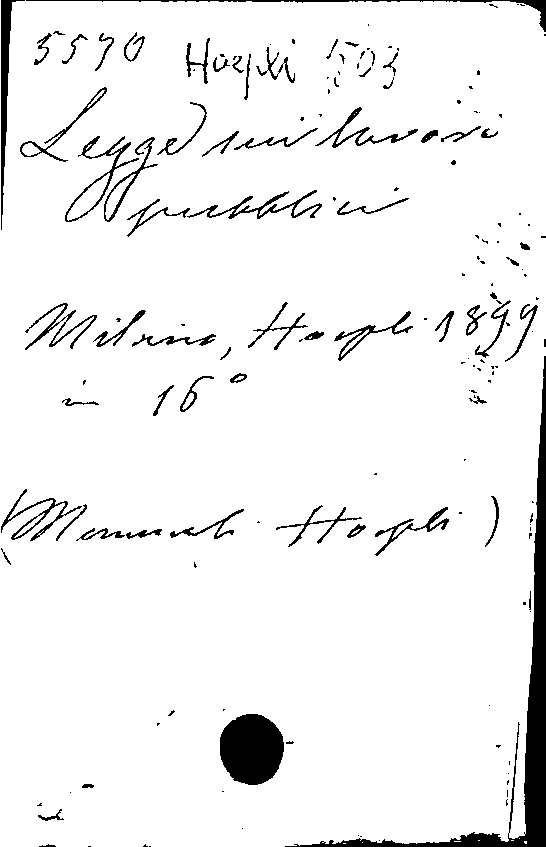 5570 Hoepli 503
Legge sui lavori
pubblici
Milano, Hoepli 1899
in 16°
(Manuali Hoepli)